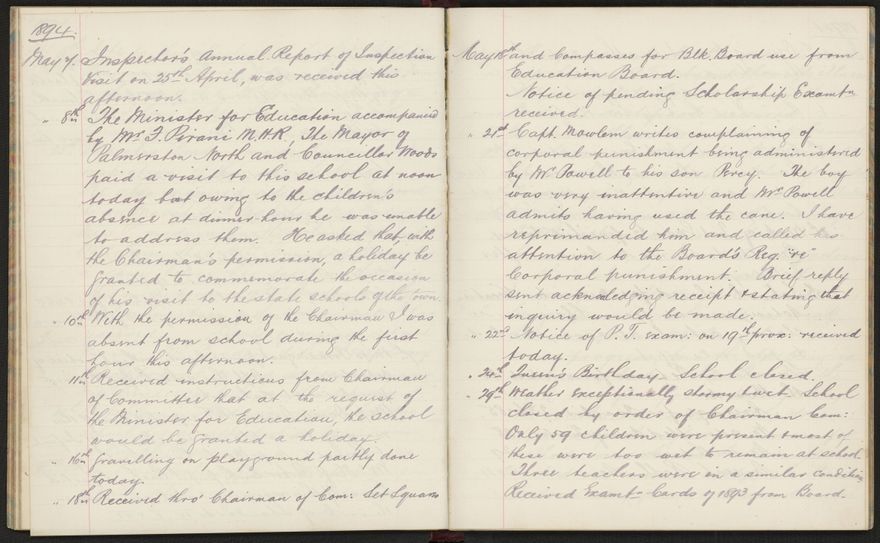 1894.
May 7. Inspector's Annual Report of Inspection
Visit on 25th April, was received this
afternoon.
" 8th The Minister for Education accompanied
by Mr F. Pirani M.H.R, The Mayor of
Palmerston North and Councillor Woods
paid a visit to this school at noon
today but owing to the children's
absence at dinner-hour he was unable
to address them. He asked that, with
the Chairman's permission, a holiday be
granted to commemorate the occasion
of his visit to the state schools of the town.
" 10th With the permission of the Chairman I was
absent from school during the first
hour this afternoon.
11th Received instructions from Chairman
of Committee that at the request of
the Minister for Education, the school
would be granted a holiday.
" 16th Gravelling on playground partly done
today.
" 18th Received thro' Chairman of Com: Set Squares
May 18th and Compasses for Blk. Board use from
Education Board.
Notice of pending Scholarship Examtn
received.
" 21st Capt. Mowlem writes complaining of
corporal punishment being administered
by Mr Powell to his son Percy. The boy
was very inattentive and Mr Powell
admits having used the cane. I have
reprimanded him and called his
attention to the Board's Reg. "re"
Corporal punishment. Brief reply
sent acknowledging receipt & stating that
inquiry would be made.
" 22nd Notice of P.T. exam: on 19th prox: received
today.
" 24th Queen's Birthday School closed.
" 29th Weather exceptionally stormy & wet. School
closed by order of Chairman Com:
Only 59 children were present & most of
these were too wet to remain at school.
Three teachers were in a similar condition
Received Examtn Cards of 1893 from Board.